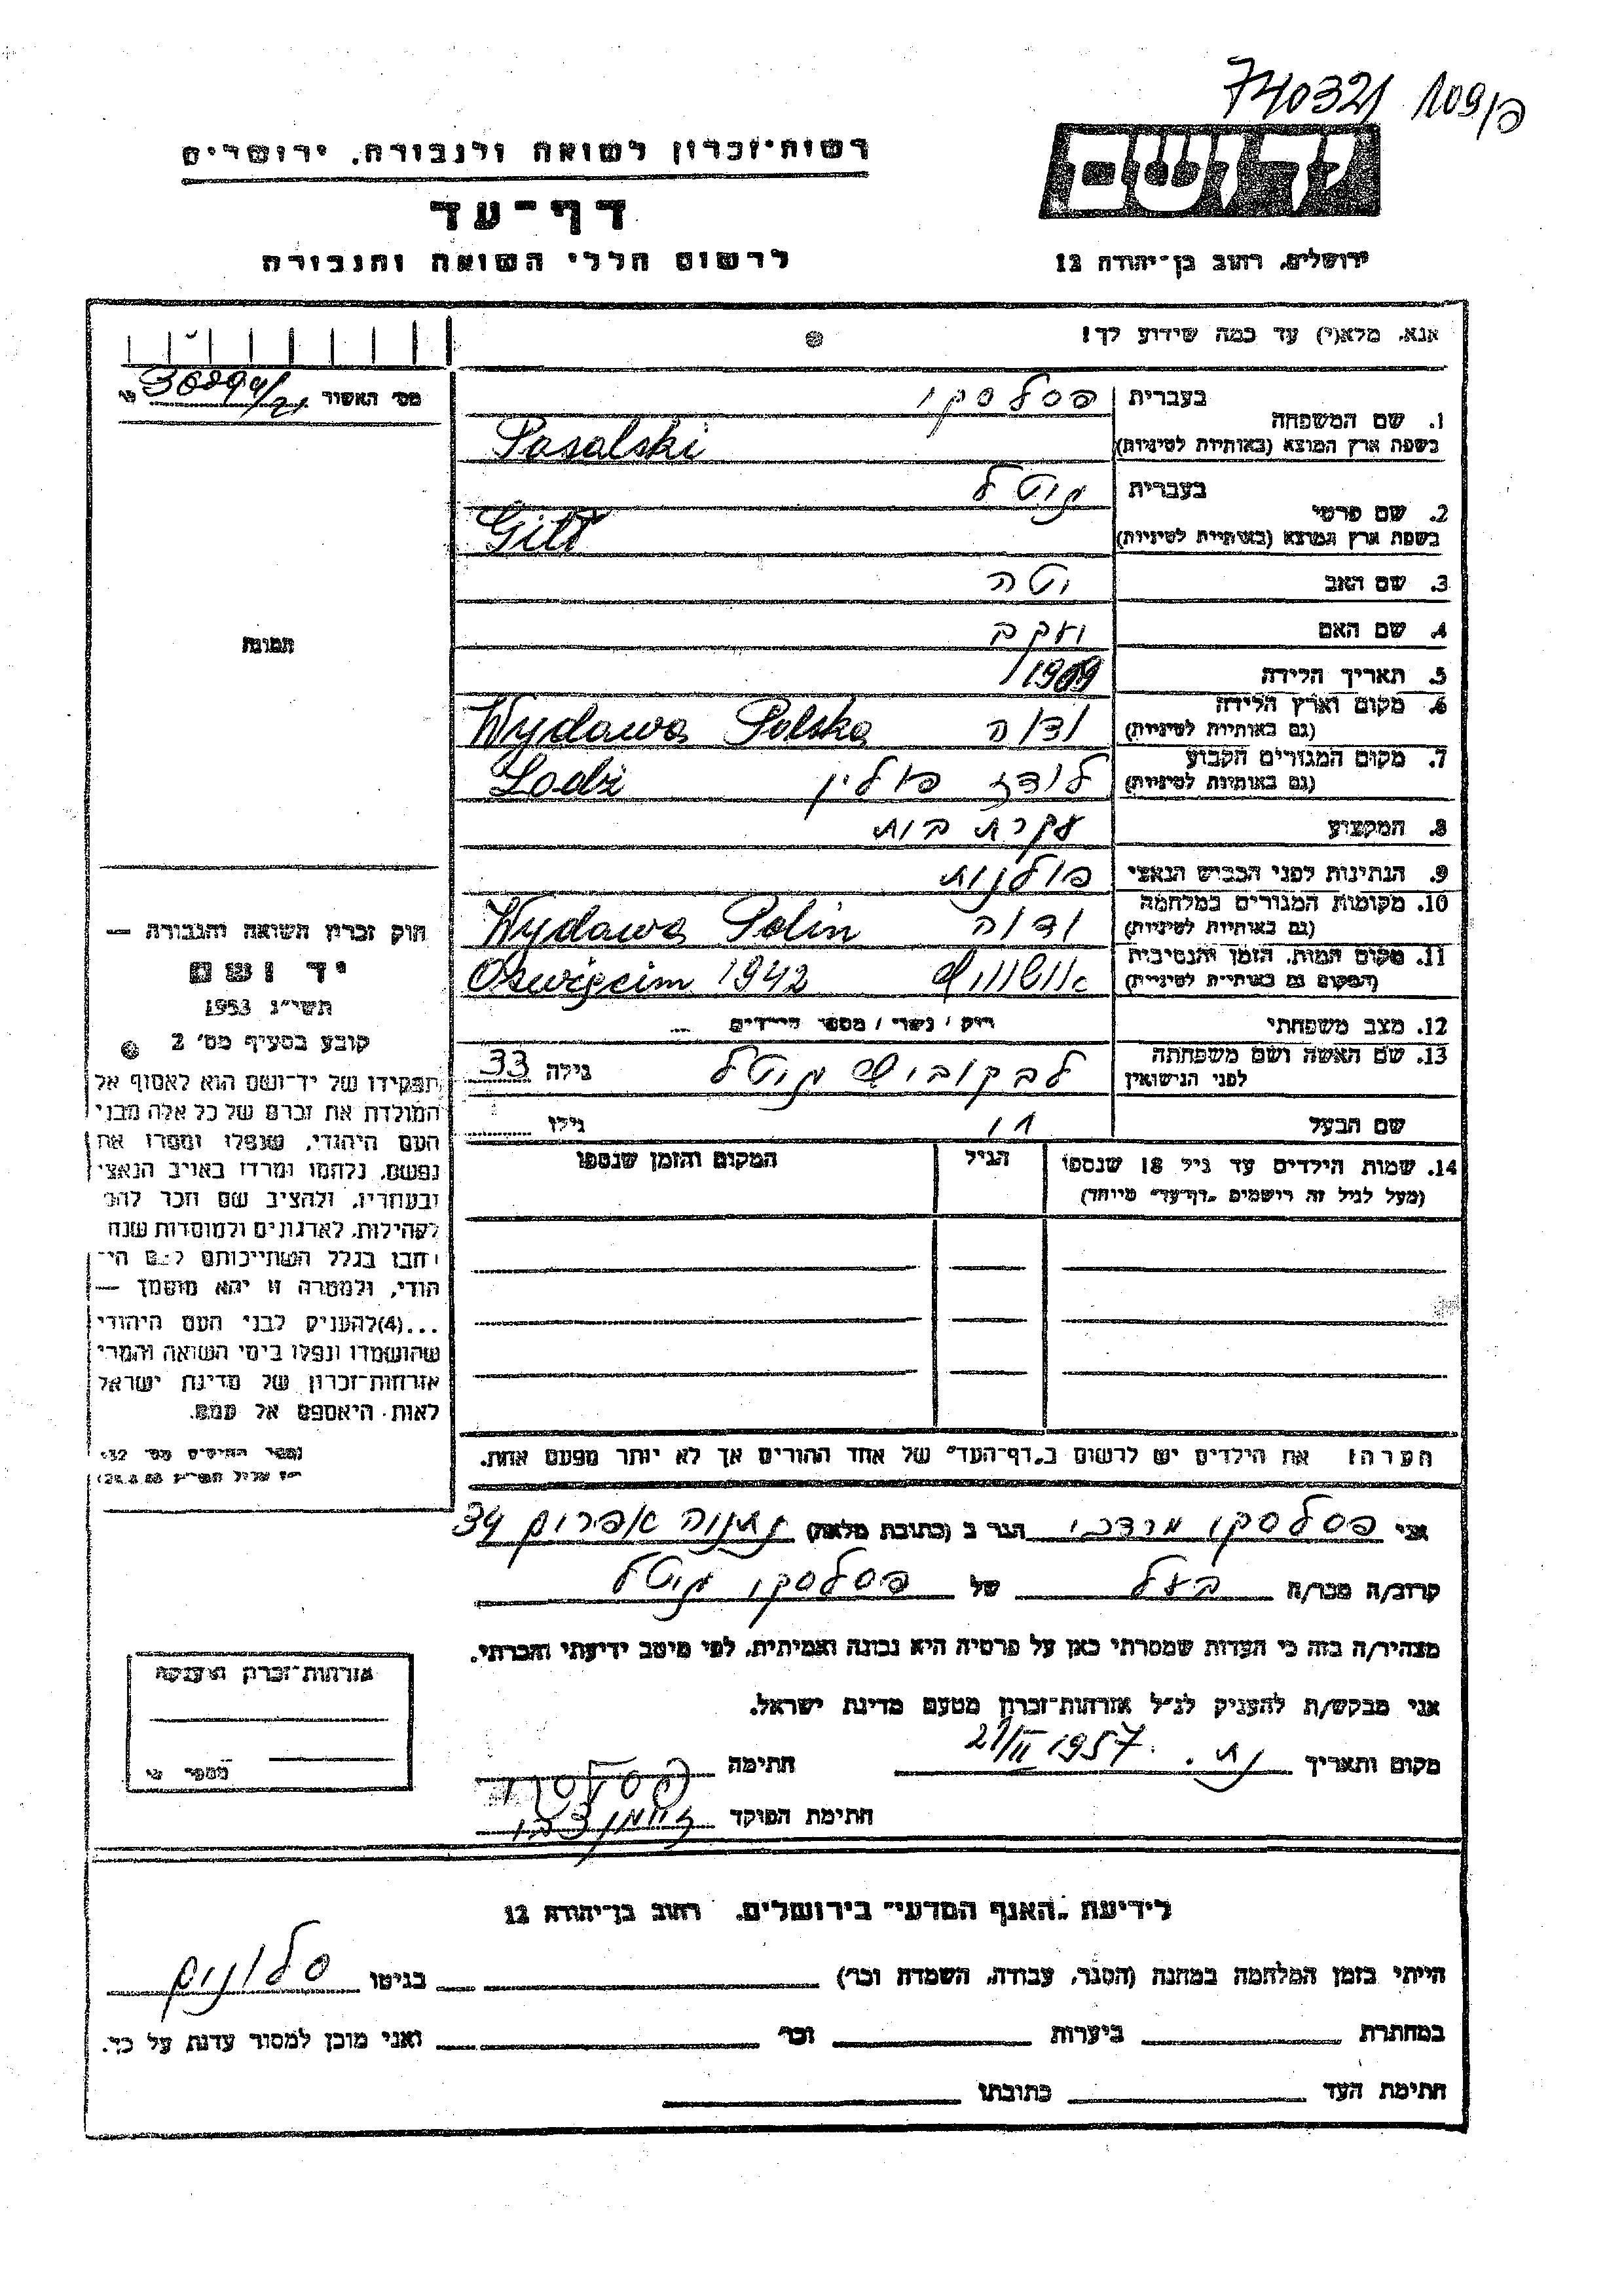 740321 109/פ
רשות-זכרון לשואה ולגבורה, ירושלים
יד ושם
דף-עד
לרשום חללי השואה והגבורה
ירושלים, רחוב בן-יהודה 12
אנא, מלא(י) עד כמה שידוע לך!
מס' האשור
1. שם המשפחה
בעברית פסלסקי
בשפת ארץ המוצא (באותיות לטיניות) Pasalski
2. שם פרטי
בעברית גיטל
בשפת ארץ המוצא (באותיות לטיניות) Gitl
3. שם האב
4. שם האם
5. תאריך הלידה 1909
6. מקום וארץ הלידה
(גם באותיות לטיניות) Wydawa Polska
7. מקום המגורים הקבוע
(גם באותיות לטיניות) לודז פולין Lodź
8. המקצוע עקרת בית
9. הנתינות לפני הכבוש הנאצי פולנית
10. מקומות המגורים במלחמה
(גם באותיות לטיניות) Wydawa Polin
11. מקום המות, הזמן והנסיבות
(המקום גם באותיות לטיניות) אושוויץ Oswięcim 1942
12. מצב משפחתי רווק / נשוי / מספר הילדים
13. שם האשה ושם משפחתה
לפני הנישואין גיטל גילה 33
שם הבעל גילו
14. שמות הילדים עד גיל 18 שנספו הגיל המקום והזמן שנספו
(מעל לגיל זה רושמים "דף-עד" מיוחד)
תמונה
חוק זכרון השואה והגבורה —
יד ושם
תשי"ג 1953
קובע בסעיף מס' 2
תפקידו של יד-ושם הוא לאסוף אל
המולדת את זכרם של כל אלה מבני
העם היהודי, שנפלו ומסרו את
נפשם, נלחמו ומרדו באויב הנאצי
ובעוזריו, ולהציב שם וזכר להם
לקהילות, לארגונים ולמוסדות שנח
רבו בגלל השתייכותם לעם הי-
הודי, ולמטרה זו יהא מוסמך —
...(4)להעניק לבני העם היהודי
שהושמדו ונפלו בימי השואה והמרי
אזרחות-זכרון של מדינת ישראל
לאות היאספם אל עמם.
הערה: את הילדים יש לרשום ב"דף-העד" של אחד ההורים אך לא יותר מפעם אחת.
אני פסלסקי מרדכי הגר ב (כתובת מלאה) נתניה אפרים 34
קרוב/ה מכר/ה בעל של פסלסקי גיטל
מצהיר/ה בזה כי העדות שמסרתי כאן על פרטיה היא נכונה ואמיתית, לפי מיטב ידיעתי והכרתי.
אני מבקש/ת להעניק לנ"ל אזרחות-זכרון מטעם מדינת ישראל.
מקום ותאריך 21/II 1957 חתימה
חתימת הפוקד
אזרחות-זכרון הוענקה
מספר
לידיעת "האגף המדעי" בירושלים, רחוב בן-יהודה 12
הייתי בזמן המלחמה במחנה (הסגר, עבודה, השמדה וכו') בגיטו סלונים
במחתרת ביערות וכו' ואני מוכן למסור עדות על כך.
חתימת העד כתובתו